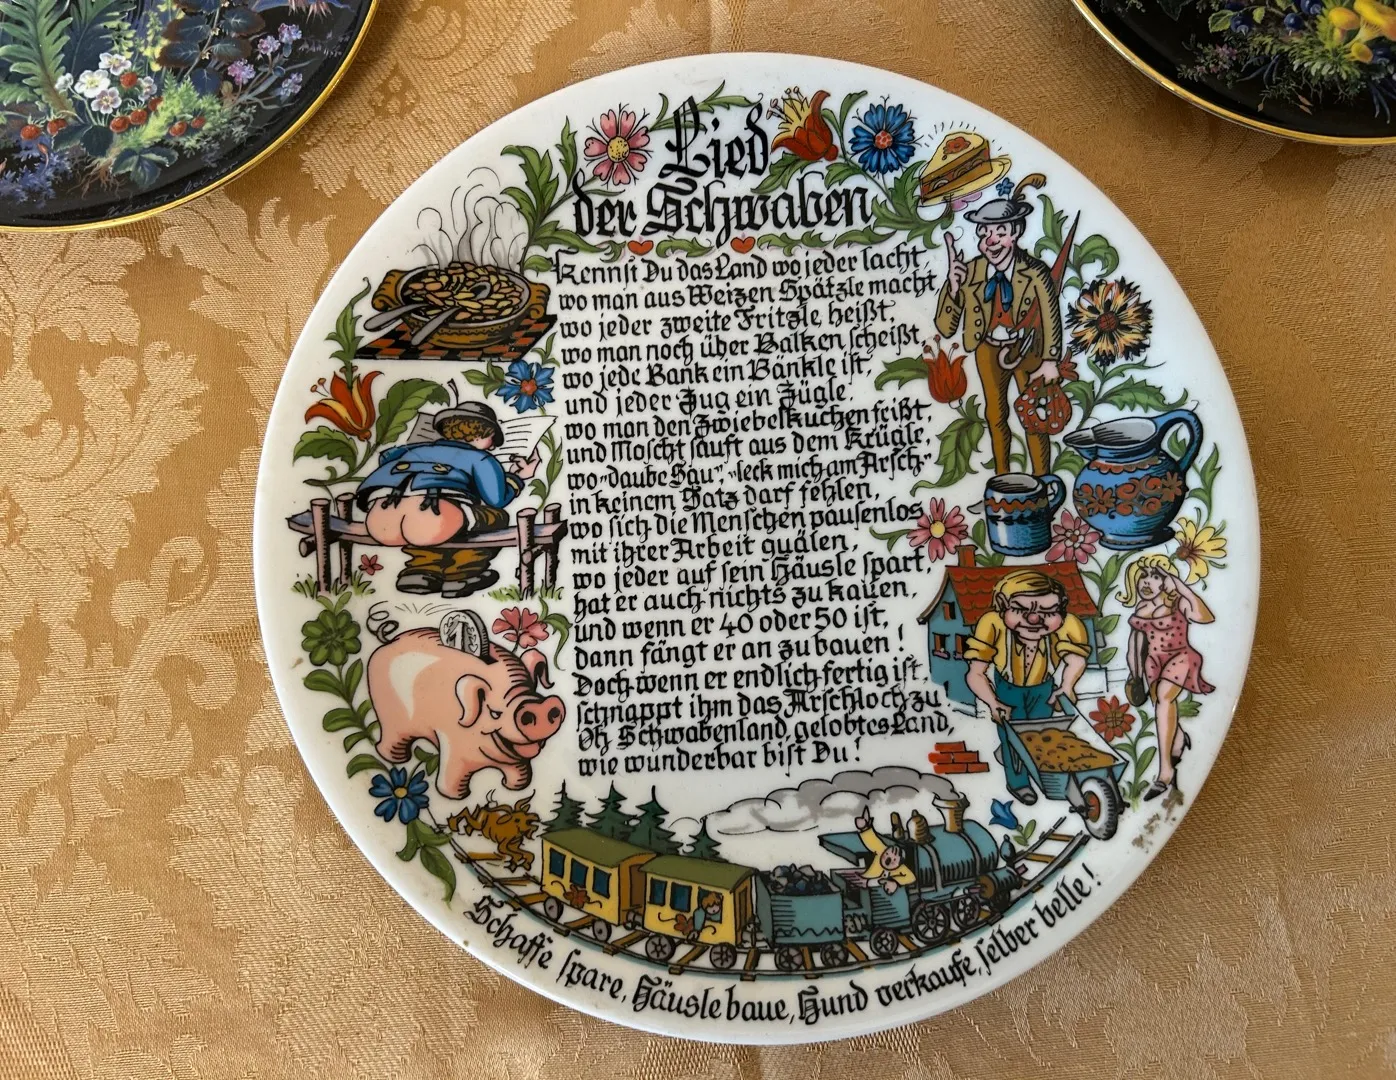 Lied
der Schwaben
Kennst Du das Land wo jeder lacht,
wo man aus Weizen Spätzle macht,
wo jeder zweite Fritzle heißt,
wo man noch über Balken scheißt,
wo jede Bank ein Bänkle ist,
und jeder Zug ein Zügle,
wo man den Zwiebelkuchen frißt,
und Moscht sauft aus dem Krügle,
wo "daube Sau", "leck mich am Arsch"
in keinem Satz darf fehlen,
wo sich die Menschen pausenlos
mit ihrer Arbeit quälen,
wo jeder auf sein Häusle spart,
hat er auch nichts zu kauen,
und wenn er 40 oder 50 ist,
dann fängt er an zu bauen!
Doch wenn er endlich fertig ist,
schnappt ihm das Arschloch zu!
Oh Schwabenland, gelobtes Land,
wie wunderbar bist Du!
Schaffe spare, Häusle baue, Hund verkaufe, selber belle!